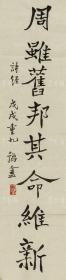 周雖舊邦其命維新
詩經
戊戌重九